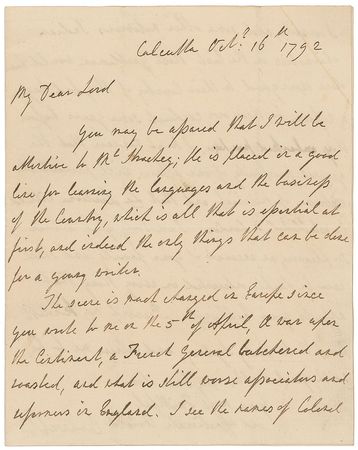 Calcutta Octr. 16th 1792
My Dear Lord
You may be assured that I will be
attentive to Mr. Strachey; He is placed in a good
line for learning the languages and the business
of the Country, which is all that is essential at
first, and indeed the only things that can be done
for a young writer.
The scene is much changed in Europe since
you wrote to me on the 5th of April, A war upon
the Continent, a French General butchered and
roasted, and what is still worse associators and
reformers in England. I see the names of Colonel